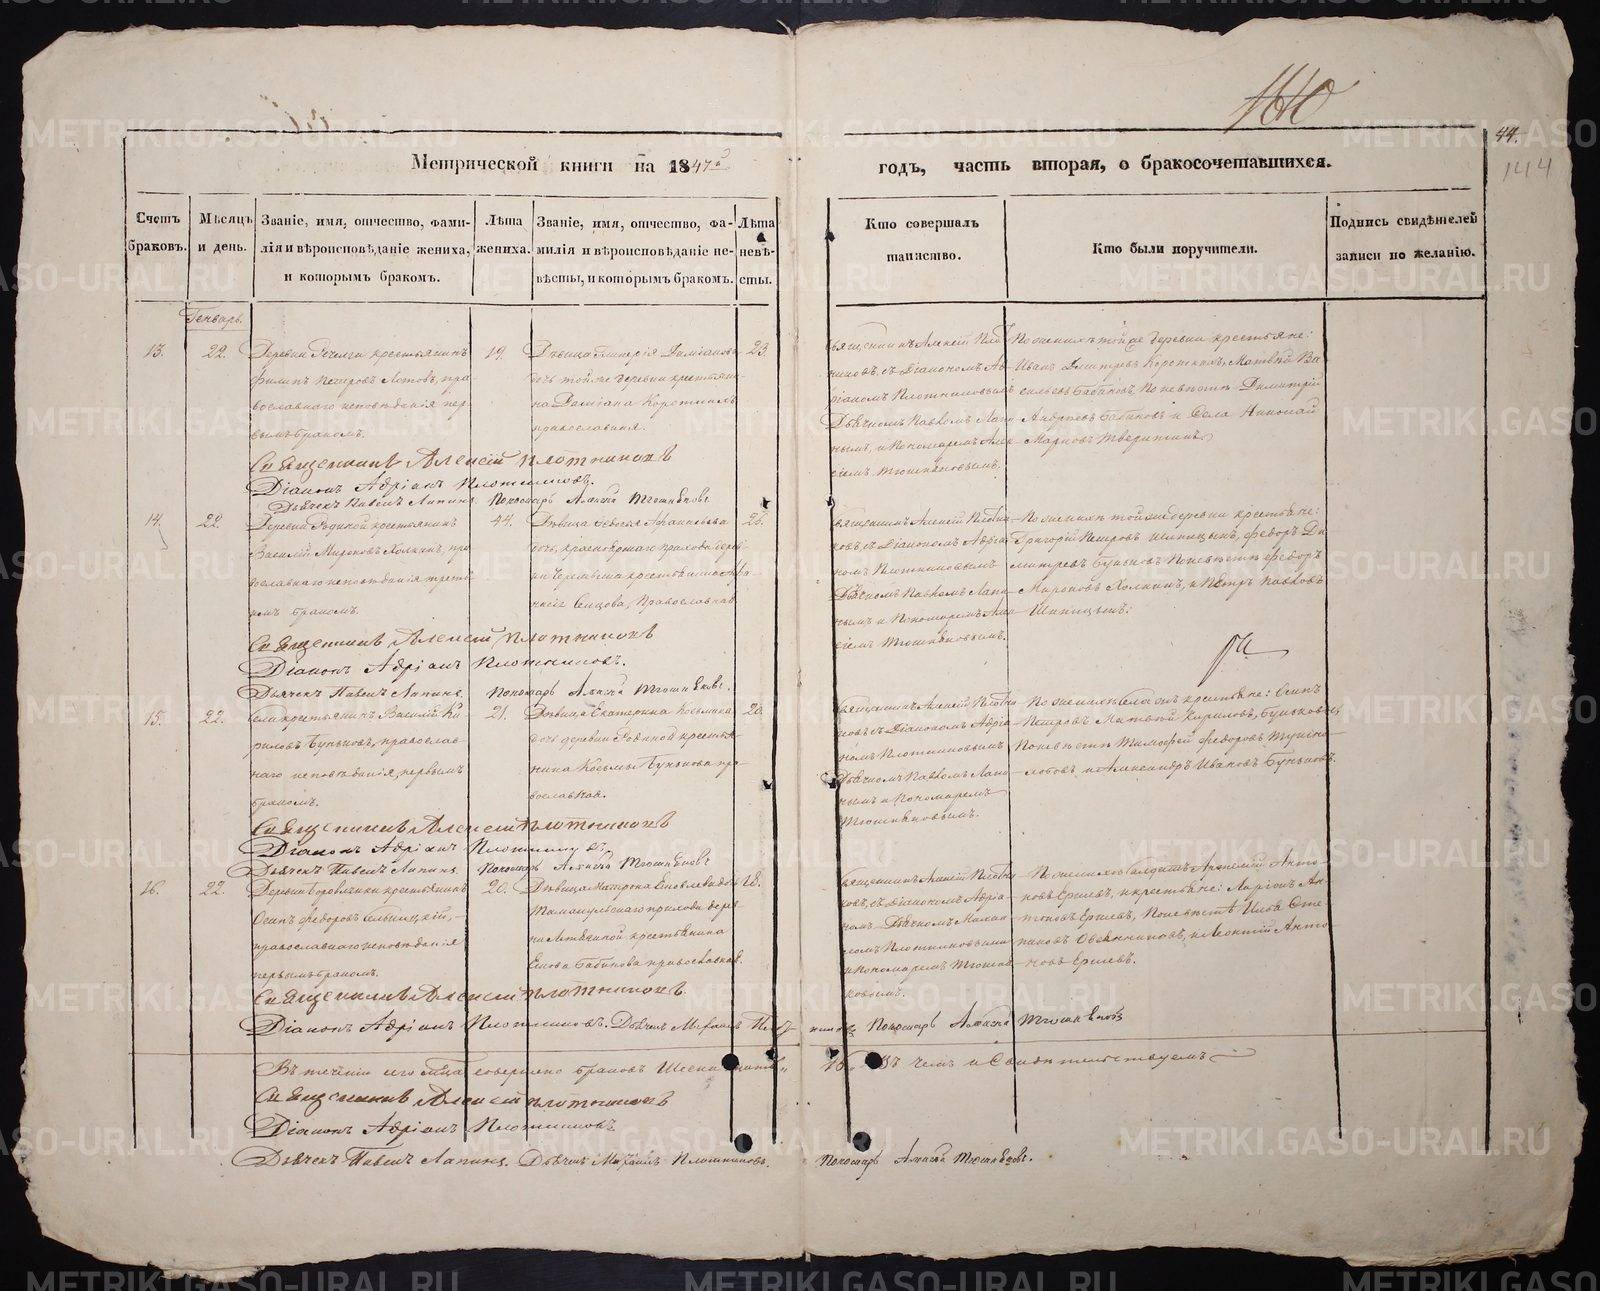 140
44.
144
Метрической книги на 1847й годъ, часть вторая, о бракосочетавшихся.
Счетъ браковъ.
Мѣсяцъ и день.
Званіе, имя, отчество, фами-
лія и вѣроисповѣданіе жениха,
и которымъ бракомъ.
Лѣта жениха.
Званіе, имя, отчество, фа-
милія и вѣроисповѣданіе не-
вѣсты, и которымъ бракомъ.
Лѣта невѣ-
сты.
Кто совершалъ
таинство.
Кто были поручители.
Подпись свидѣтелей
записи по желанію.
Генварь.
13.
22.
крестьянинъ
Филипъ Петровъ пра-
вославнаго исповѣданія пер-
вымъ бракомъ.
19.
Дѣвица
дочь тойже деревни крестьяни-
на
православная.
23.
Священникъ Алексій Плот-
никовъ, съ Діакономъ Ад-
ріаномъ Плотниковымъ
Дьячкомъ Павломъ Лапи-
нымъ, и Пономаремъ Алек-
сіемъ Тюшняковымъ.
По женихѣ той же деревни крестьяне:
Иванъ Дмитревъ Матвѣй Ва-
сильевъ Бабиновъ По невѣстѣ Димитрій
Андреевъ Бабиновъ и Села Николай
Марковъ Тверитинъ
Священникъ Алексій Плотниковъ
Діаконъ Адріанъ Плотниковъ.
Дьячекъ Павелъ Лапинъ. Пономарь Алексѣй Тюшняковъ
14.
22.
Деревни Родиной крестьянинъ
Василій Мироновъ Холкинъ, пра-
вославнаго исповѣданія треть-
имъ бракомъ.
44.
Дѣвица Федосья Афанасьева
дочь, прихода дерев-
ни крестьянина Афа-
насія Православная
25.
Священникъ Алексій Плотни-
ковъ, съ Діакономъ Адріа-
номъ Плотниковымъ
Дьячкомъ Павломъ Лапи-
нымъ и Пономаремъ Але-
ксіемъ Тюшняковымъ.
По женихѣ той же деревни крестьяне:
Григорій Петровъ Шипицынъ, Федоръ Ди-
митревъ Буньковъ По невѣстѣ Федоръ
Мироновъ Холкинъ, и Петръ Павловъ
Шипицынъ:
Священникъ Алексій Плотниковъ
Діаконъ Адріанъ Плотниковъ.
Дьячекъ Павелъ Лапинъ. Пономарь Алексѣй Тюшняковъ.
15.
22.
Села крестьянинъ Василій Ки-
риловъ Буньковъ, православ-
наго исповѣданія, первымъ
бракомъ.
21.
Дѣвица Екатерина Козьмина
дочь деревни Родиной крестья-
нина Козьмы Бунькова пра-
вославная.
20.
Священникъ Алексій Плотни-
ковъ съ Діакономъ Адріа-
номъ Плотниковымъ
Дьячкомъ Павломъ Лапи-
нымъ и Пономаремъ
Тюшняковымъ.
По женихѣ крестьяне: Осипъ
Петровъ Кириловъ, Буньковы;
По невѣстѣ Тимофей Федоровъ
и Александръ Ивановъ Буньковъ.
Священникъ Алексій Плотниковъ
Діаконъ Адріанъ Плотниковъ
Дьячекъ Павелъ Лапинъ. Пономарь Алексѣй Тюшняковъ
16.
22.
Деревни крестьянинъ
Осипъ Федоровъ
православнаго исповѣданія
первымъ бракомъ.
20.
Дѣвица Матрона Яковлева дочь
прихода дерев-
ни крестьянина
Якова Бабинова православная.
18.
Священникъ Алексій Плотни-
ковъ, съ Діакономъ Адріа-
номъ Дьячкомъ Михаи-
ломъ Плотниковыми
и Пономаремъ Тюшня-
ковымъ.
По женихѣ Солдатъ Анто-
новъ Ершевъ, и крестьяне: Ларіонъ Ан-
тоновъ Ершевъ, По невѣстѣ Сте-
пановъ Овчинниковъ, и Леонтій Анто-
новъ Ершевъ.
Священникъ Алексій Плотниковъ
Діаконъ Адріанъ Плотниковъ. Дьячекъ Михаилъ Плотниковъ Пономарь Алексѣй Тюшняковъ
Въ теченіи сего мѣсяца совершено браковъ Шестнадцать 16. Въ чемъ и Свидѣтельствуемъ
Священникъ Алексій Плотниковъ
Діаконъ Адріанъ Плотниковъ
Дьячекъ Павелъ Лапинъ. Дьячекъ Михаилъ Плотниковъ. Пономарь Алексѣй Тюшняковъ.
METRIKI.GASO-URAL.RU